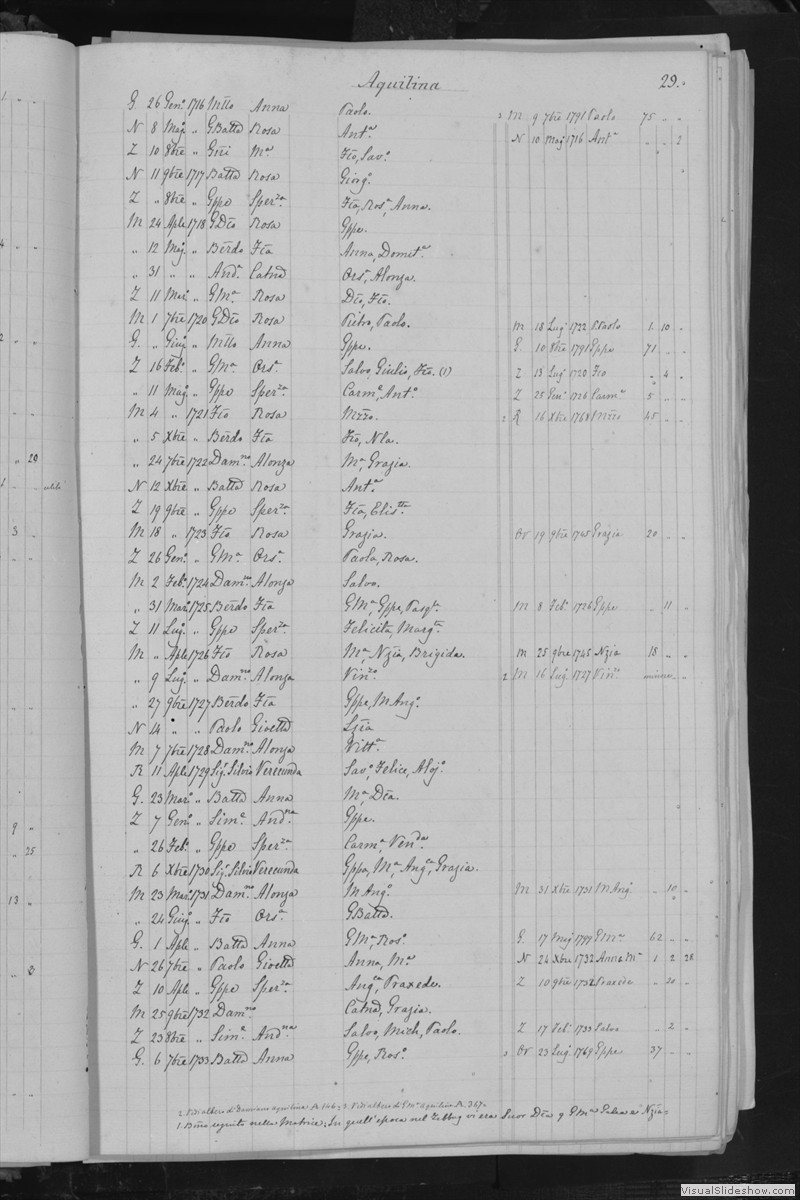 Aquilina 29.
G. 26 Gen.o 1716 Mttò Anna Paolo. 2 M 9 7bre 1791 Paolo 75 " "
N 8 Maj. " GBattã Rosa Ant.a N 10 Maj 1716 Ant.a " " 2
Z 10 8bre " Gñi M.a Fcò, Sav.a
N 11 9bre 1717 Battã Rosa Giorg.o
Z " 8bre " Gppe Sper.za Fcã, Ros.a, Anna.
M 24 Aple 1718 GDcò Rosa Gppe.
" 12 Maj. " Bẽrdo Fcã Anna, Domet.a
" 31 " " And.a Catnã Ors.a, Alonza.
Z 11 Mar.o " GM.a Rosa Dcò, Fcò.
M 1 7bre 1720 GDcò Rosa Pietro, Paolo. M 18 Lug 1722 P.Paolo 1 10 "
G. " Giug. " Mttò Anna Gppe. G. 10 8bre 1791 Gppe 71 " "
Z 16 Feb.o " GM.a Ors.a Salvo, Giulio, Fcò. (1) Z 13 Lug 1720 Fcò " 4 "
" 11 Maj. " Gppe Sper.za Carm.o, Ant.o Z 25 Gen. 1726 Carm.o 5 " "
M 4 " 1721 Fcò Rosa Mzzo. 2 R 16 Xbre 1768 Mzzo 45 " "
" 5 Xbre " Bẽrdo Fcã Fcò, Nla.
" 24 7bre 1722 Dam.no Alonza M.a, Grazia.
N 12 Xbre " Battã Rosa Ant.a
Z 19 9bre " Gppe Sper.za Fcã, Elis.tta
M 18 " 1723 Fcò Rosa Grazia. Or 19 9bre 1745 Grazia 20 " "
Z 26 Gen.o " GM.a Ors.a Paola, Rosa.
M 2 Feb.o 1724 Dam.no Alonza Salvo.
" 31 Mar.o 1725 Bẽrdo Fcã GM.a, Gppe, Pasq.le M 8 Feb.o 1726 Gppe " 11 "
Z 11 Lug. " Gppe Sper.za Felicita, Marg.ta
M " Aple 1726 Fcò Rosa M.a, Nzia, Brigida. M 25 9bre 1745 Nzia 18 " "
" 9 Lug. " Dam.no Alonza Vin.zo 2 M 16 Lug. 1727 Vin.zo minore "
" 27 9bre 1727 Bẽrdo Fcã Gppe, MAng.o
N 14 " " Paolo Gioettã Lzia
M 7 7bre 1728 Dam.no Alonza Vitt.a
R 11 Aple 1729 Sig. Silvio Verecunda Sav.o, Felice, Aloj.o
G. 23 Mar.o " Battã Anna M.a, Dcã.
Z 7 Gen.o " Sim.e And.na Gppe.
" 26 Feb.o " Gppe Sper.za Carm.a, Ven.da
R 6 Xbre 1730 Sig. Silvio Verecunda Gppa, M.a Ang.ca, Grazia.
M 23 Mar.o 1731 Dam.no Alonza MAng.o M 31 Xbre 1731 MAng.o " 10 "
" 24 Giug. " Fcò Ors.a GBattã.
G. 1 Aple " Battã Anna GM.a, Ros.o G. 17 Maj 1799 GM.a 62 " "
N 26 7bre " Paolo Gioettã Anna, M.a N 24 Xbre 1732 Anna M.a 1 2 28
Z 10 Aple " Gppe Sper.za Ang.ca, Praxede. Z 10 9bre 1732 Praxede " 20 "
M 25 9bre 1732 Dam.no Catnã, Grazia.
Z 23 8bre " Sim.e And.na Salvo, Mich, Paolo. Z 17 Feb. 1733 Salvo " 2 "
G. 6 7bre 1733 Battã Anna Gppe, Ros.o 3 Or 23 Lug 1769 Gppe 37 " "
2. Vedi albero di Damiano Aquilina 3. Vedi albero di GM.a Aquilina A. 367.
1. Bmo seguito nella Matrice; In quell'epoca nel Zebbug vi era Suor Dcã
20
3
9 "
" 25
13 "
VisualSlideshow.com